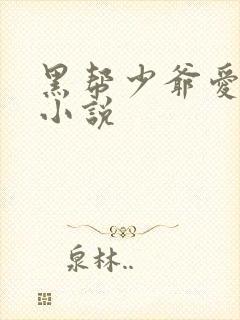 黑帮少爷爱
小說
泉林..